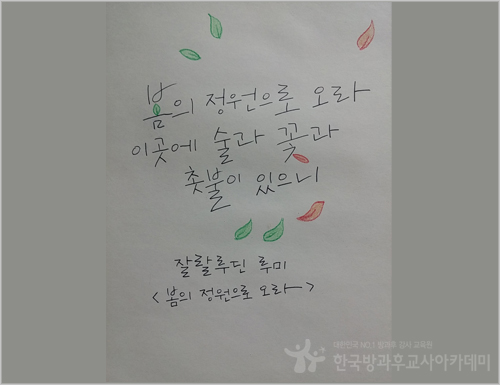 봄의 정원으로 오라
이곳에 술과 꽃과
촛불이 있으니
잘랄루딘 루미
<봄의 정원으로 오라>
대한민국 NO.1 방과후 강사 교육원
한국방과후교사아카데미